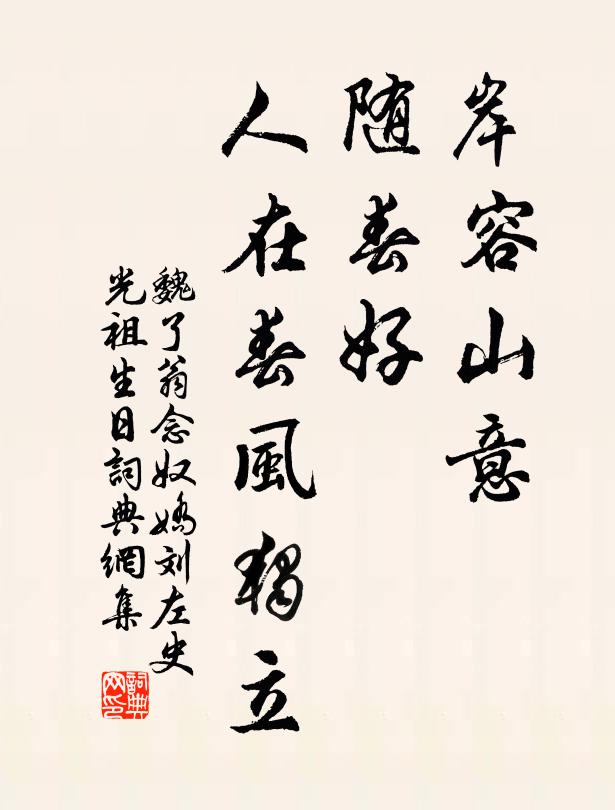 岸容山意
随春好
人在春風獨立
魏了翁念奴嬌刘左史
光祖生日詞典網集
詞典网印